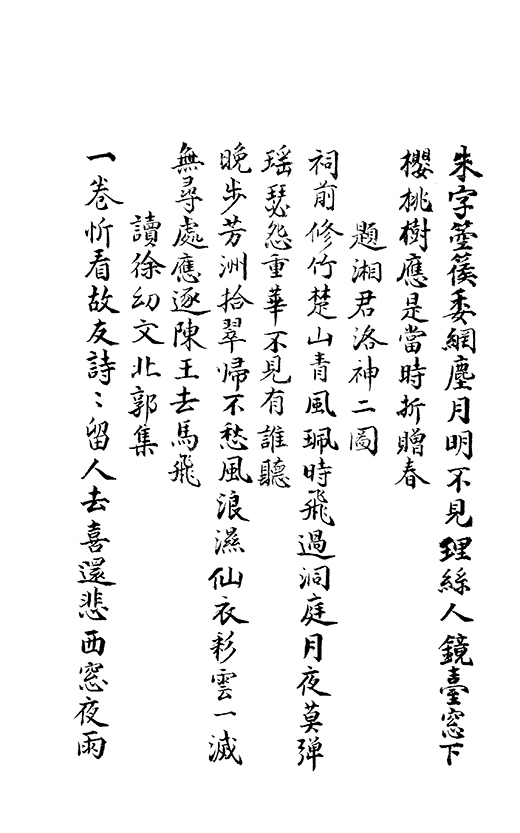 朱字箜篌委網塵月明不見理絲人鏡臺窓下
櫻桃樹應是當時折贈春
題湘君洛神二圖
祠前修竹楚山青風珮時飛過洞庭月夜莫弹
瑶瑟怨重華不見有誰聽
晚步芳洲拾翠帰不愁風浪濕仙衣彩雲一滅
無尋處應逐陳王去馬飛
讀徐幻文北郭集
一卷忻看故友詩〻留人去喜還悲西窓夜雨